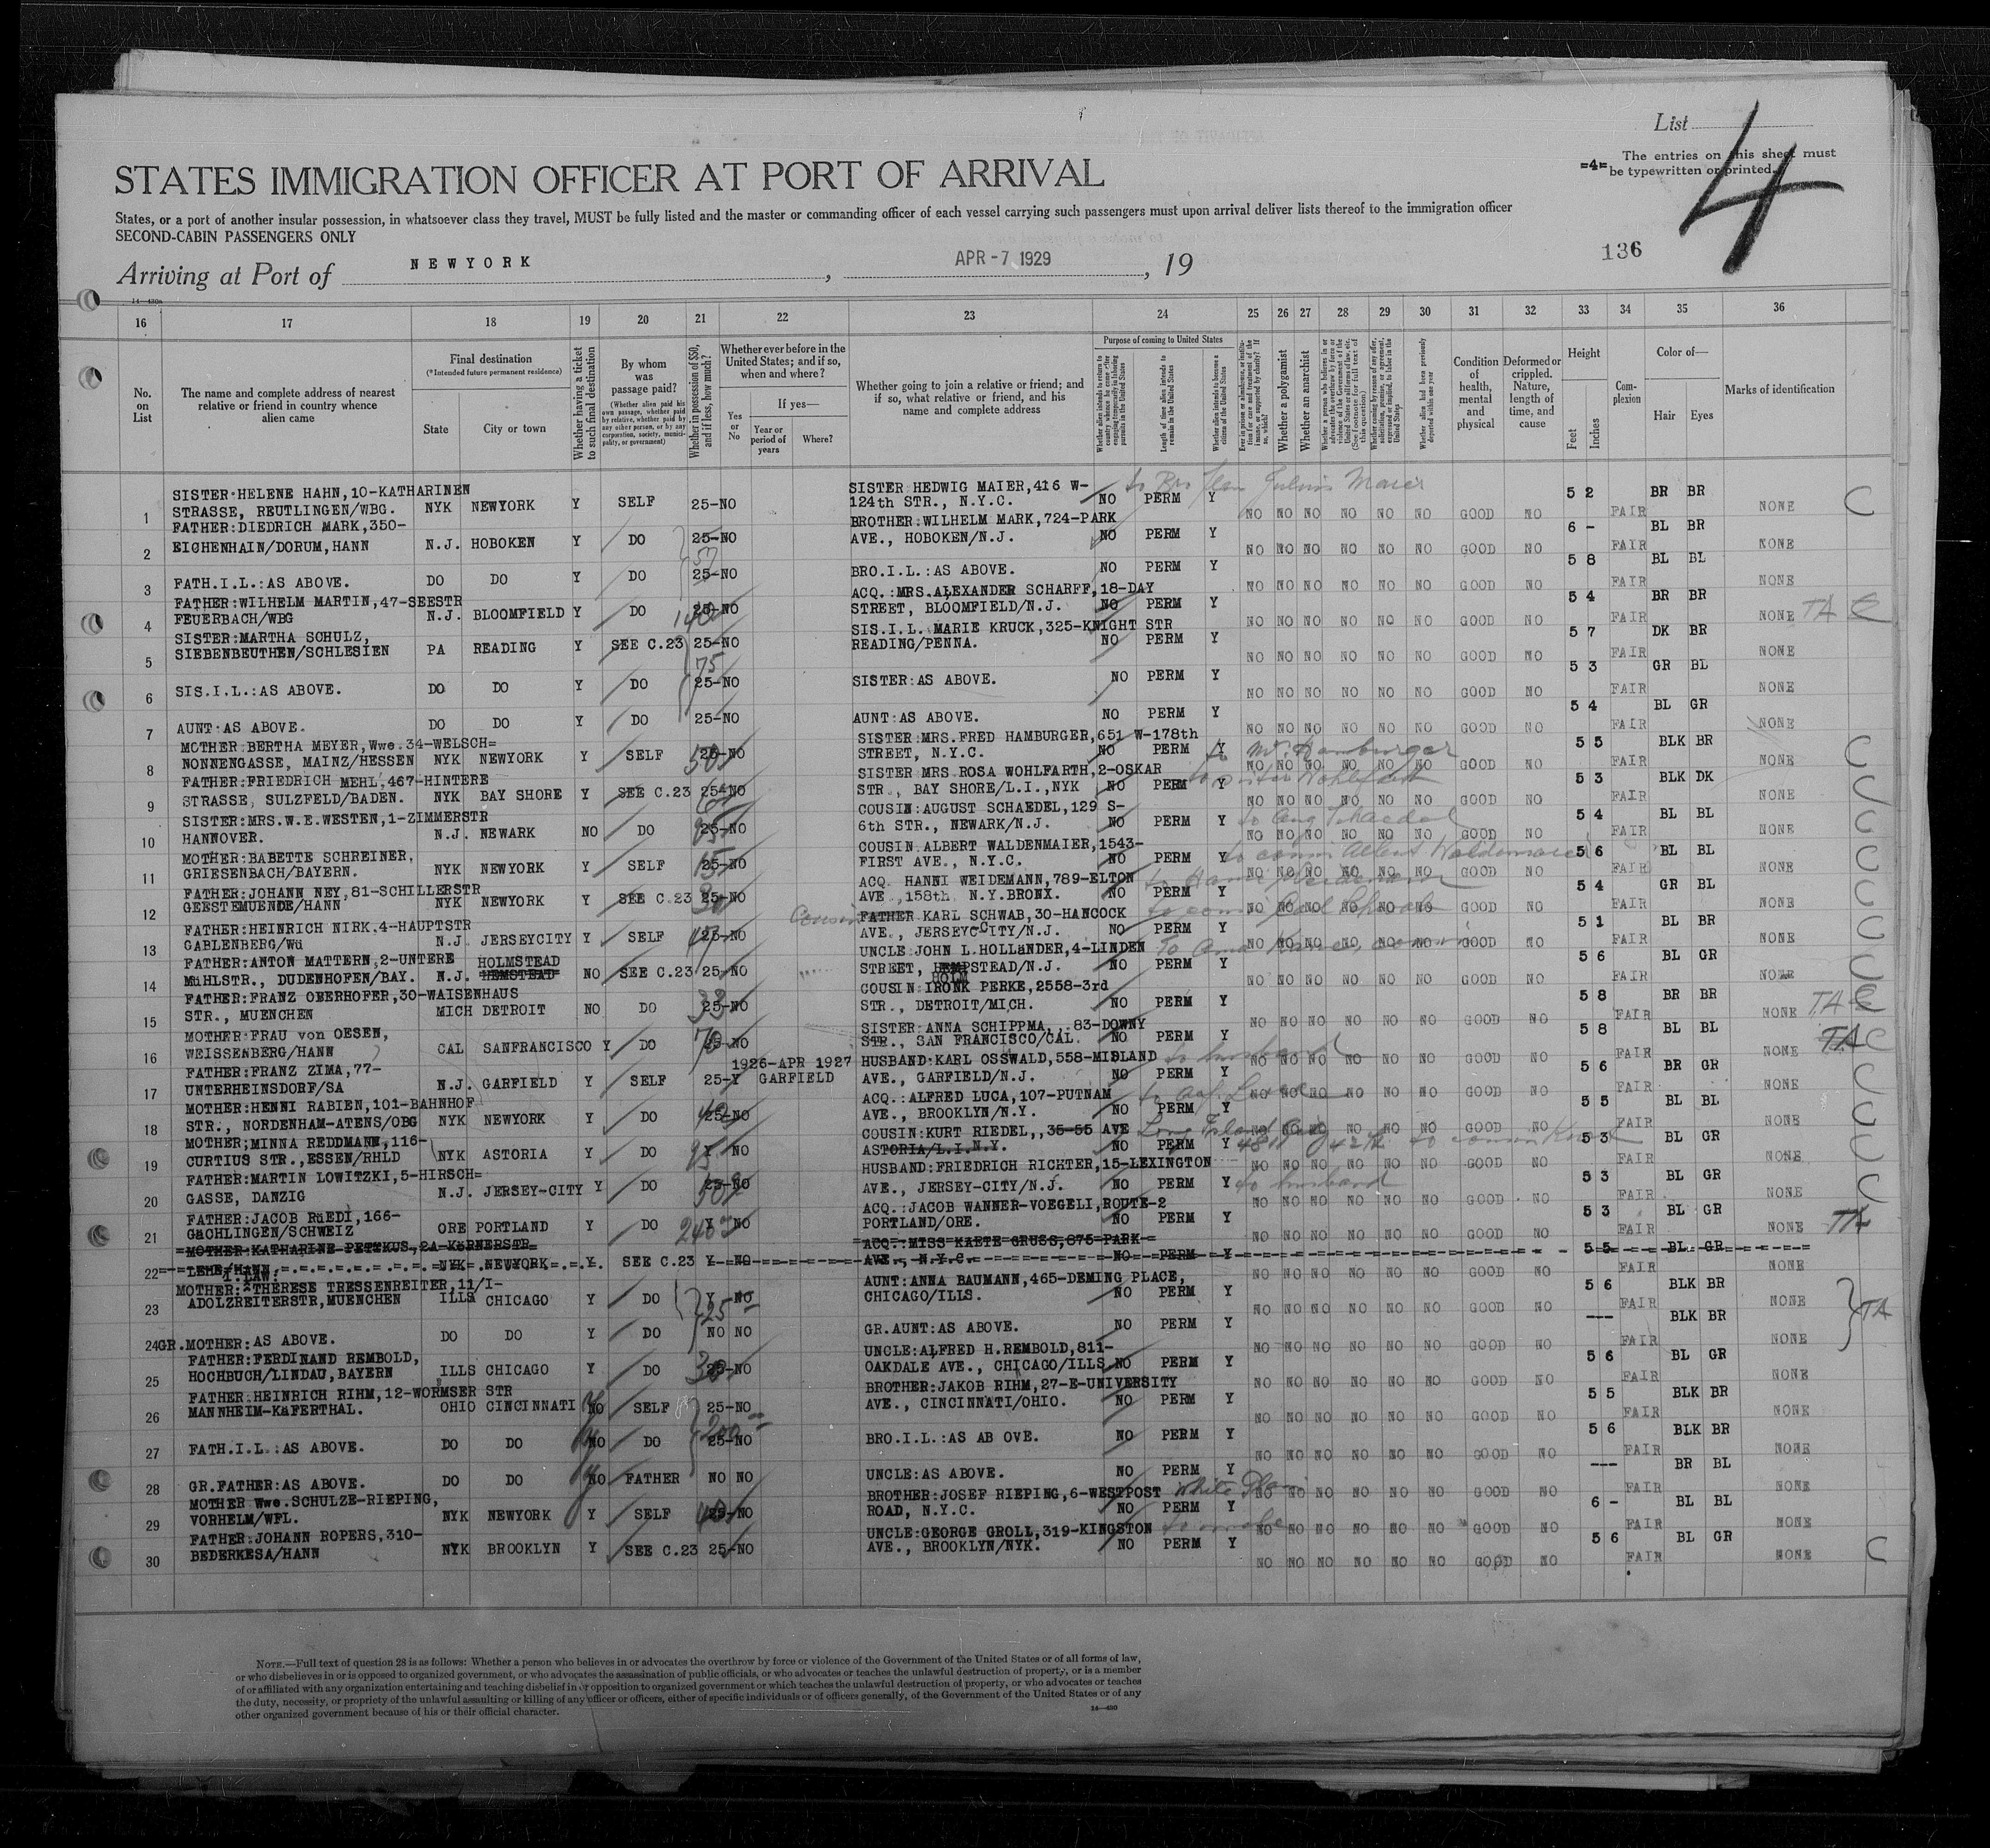 List
4
=4= The entries on this sheet must
be typewritten or printed.
STATES IMMIGRATION OFFICER AT PORT OF ARRIVAL
States, or a port of another insular possession, in whatsoever class they travel, MUST be fully listed and the master or commanding officer of each vessel carrying such passengers must upon arrival deliver lists thereof to the immigration officer
SECOND-CABIN PASSENGERS ONLY
136
Arriving at Port of NEWYORK, APR-7 1929, 19
14-430a
16 17 18 19 20 21 22 23 24 25 26 27 28 29 30 31 32 33 34 35 36
No. on List
The name and complete address of nearest relative or friend in country whence alien came
Final destination
(*Intended future permanent residence)
State
City or town
Whether having a ticket to such final destination
By whom was passage paid?
(Whether alien paid his own passage, whether paid by relative, whether paid by any other person, or by any corporation, society, municipality, or government)
Whether in possession of $50, and if less, how much?
Whether ever before in the United States; and if so, when and where?
Yes or No
If yes—
Year or period of years
Where?
Whether going to join a relative or friend; and if so, what relative or friend, and his name and complete address
Purpose of coming to United States
Whether alien intends to return to country whence he came after engaging temporarily in laboring pursuits in the United States
Length of time alien intends to remain in the United States
Whether alien intends to become a citizen of the United States
Whether a polygamist
Whether an anarchist
Whether alien had been previously deported within one year
Condition of health, mental and physical
Deformed or crippled. Nature, length of time, and cause
Height
Feet
Inches
Complexion
Color of—
Hair
Eyes
Marks of identification
SISTER:HELENE HAHN,10-KATHARINEN SISTER HEDWIG MAIER,416 W- Julius Maier
1 STRASSE, REUTLINGEN/WBG. NYK NEWYORK Y SELF 25-NO 124th STR., N.Y.C. NO PERM Y NO NO NO NO NO NO GOOD NO 5 2 FAIR BR BR NONE C
FATHER:DIEDRICH MARK,350- BROTHER:WILHELM MARK,724-PARK
2 EICHENHAIN/DORUM,HANN N.J. HOBOKEN Y DO 25-NO AVE., HOBOKEN/N.J. NO PERM Y NO NO NO NO NO NO GOOD NO 6 - FAIR BL BR NONE
3 FATH.I.L.:AS ABOVE. DO DO Y DO 25-NO BRO.I.L.:AS ABOVE. NO PERM Y NO NO NO NO NO NO GOOD NO 5 8 FAIR BL BL NONE
FATHER:WILHELM MARTIN,47-SEESTR ACQ.:MRS.ALEXANDER SCHARFF,18-DAY
4 FEUERBACH/WBG N.J. BLOOMFIELD Y DO 140 25-NO STREET, BLOOMFIELD/N.J. NO PERM Y NO NO NO NO NO NO GOOD NO 5 4 FAIR BR BR NONE TA C
SISTER:MARTHA SCHULZ, SIS.I.L. MARIE KRUCK,325-KNIGHT STR
5 SIEBENBEUTHEN/SCHLESIEN PA READING Y SEE C.23 25-NO READING/PENNA. NO PERM Y NO NO NO NO NO NO GOOD NO 5 7 FAIR DK BR NONE
75
6 SIS.I.L.:AS ABOVE. DO DO Y DO 25-NO SISTER:AS ABOVE. NO PERM Y NO NO NO NO NO NO GOOD NO 5 3 FAIR GR BL NONE
7 AUNT:AS ABOVE. DO DO Y DO 25-NO AUNT:AS ABOVE. NO PERM Y NO NO NO NO NO NO GOOD NO 5 4 FAIR BL GR NONE
MOTHER:BERTHA MEYER,Wwe.34-WELSCH= SISTER:MRS.FRED HAMBURGER,651 W-178th
8 NONNENGASSE, MAINZ/HESSEN NYK NEWYORK Y SELF 50 25-NO STREET, N.Y.C. NO PERM Y Hamburger NO NO GO NO NO NO GOOD NO 5 5 FAIR BLK BR NONE C
FATHER:FRIEDRICH MEHL,467-HINTERE SISTER MRS.ROSA WOHLFARTH,2-OSKAR
9 STRASSE, SULZFELD/BADEN. NYK BAY SHORE Y SEE C.23 25-NO STR., BAY SHORE/L.I.,NYK NO PERM Y to sister Wohlfart NO NO NO NO NO NO GOOD NO 5 3 FAIR BLK DK NONE C
SISTER:MRS.W.E.WESTEN,1-ZIMMERSTR COUSIN:AUGUST SCHAEDEL,129 S-
10 HANNOVER. N.J. NEWARK NO DO 25-NO 6th STR., NEWARK/N.J. NO PERM Y to Aug Schaedel NO NO NO NO NO NO GOOD NO 5 4 FAIR BL BL NONE C
MOTHER:BABETTE SCHREINER, COUSIN ALBERT WALDENMAIER,1543-
11 GRIESENBACH/BAYERN. NYK NEWYORK Y SELF 15 25-NO FIRST AVE., N.Y.C. NO PERM Y to cousin Albert Waldenmaier NO NO NO NO NO NO GOOD NO 5 6 FAIR BL BL NONE C
FATHER:JOHANN NEY,81-SCHILLERSTR ACQ. HANNI WEIDEMANN,789-ELTON
12 GEESTEMUENDE/HANN NYK NEWYORK Y SEE C.23 30 25-NO AVE.,158th N.Y.BRONX. NO PERM Y NO NO NO NO NO NO GOOD NO 5 4 FAIR GR BL NONE C
FATHER:HEINRICH NIRK.4-HAUPTSTR Cousin FATHER KARL SCHWAB,30-HANCOCK to cousin Carl Schwab
13 GABLENBERG/Wü N.J. JERSEYCITY Y SELF 25-NO AVE., JERSEYCITY/N.J. NO PERM Y NO NO NO NO NO NO GOOD NO 5 1 FAIR BL BR NONE C
FATHER:ANTON MATTERN,2-UNTERE HOLMSTEAD UNCLE JOHN L.HOLLäNDER,4-LINDEN
14 MüHLSTR., DUDENHOFEN/BAY. N.J. HEMSTEAD NO SEE C.23 25-NO STREET, HEMPSTEAD/N.J. HOLM NO PERM Y NO NO NO NO NO NO GOOD NO 5 6 FAIR BL GR NONE C
FATHER:FRANZ OBERHOFER,30-WAISENHAUS COUSIN IRONK PERKE,2558-3rd
15 STR., MUENCHEN MICH DETROIT NO DO 33 25-NO STR., DETROIT/MICH. NO PERM Y NO NO NO NO NO NO GOOD NO 5 8 FAIR BR BR NONE TA C
MOTHER:FRAU von OESEN, SISTER:ANNA SCHIPPMA,..83-DOWNY
16 WEISSENBERG/HANN CAL SANFRANCISCO Y DO 70 25-NO STR., SAN FRANCISCO/CAL. NO PERM NO NO NO NO NO NO GOOD NO 5 8 FAIR BL BL NONE TA C
FATHER:FRANZ ZIMA,77- 1926-APR 1927 HUSBAND:KARL OSSWALD,558-MIDLAND to husband
17 UNTERHEINSDORF/SA N.J. GARFIELD Y SELF 25-Y GARFIELD AVE., GARFIELD/N.J. NO PERM Y NO NO NO NO NO NO GOOD NO 5 6 FAIR BR GR NONE C
MOTHER:HENNI RABIEN,101-BAHNHOF ACQ.:ALFRED LUCA,107-PUTNAM
18 STR., NORDENHAM-ATENS/OBG NYK NEWYORK Y DO 40 25-NO AVE., BROOKLYN/N.Y. NO PERM Y NO NO NO NO NO NO GOOD NO 5 5 FAIR BL BL NONE C
MOTHER;MINNA REDDMANN,116- COUSIN:KURT RIEDEL,,35-55 AVE Long Island City
19 CURTIUS STR.,ESSEN/RHLD NYK ASTORIA Y DO Y NO ASTORIA/L.I.N.Y. NO PERM Y to cousin Kurt NO NO NO NO NO NO GOOD NO 5 3 FAIR BL GR NONE C
FATHER:MARTIN LOWITZKI,5-HIRSCH= HUSBAND:FRIEDRICH RICHTER,15-LEXINGTON
20 GASSE, DANZIG N.J. JERSEY-CITY Y DO 50 25-NO AVE., JERSEY-CITY/N.J. NO PERM Y to husband NO NO NO NO NO NO GOOD NO 5 3 FAIR BL GR NONE C
FATHER:JACOB RüEDI,166- ACQ.:JACOB WANNER-VOEGELI,ROUTE-2
21 GäCHLINGEN/SCHWEIZ ORE PORTLAND Y DO 240 Y NO PORTLAND/ORE. NO PERM Y NO NO NO NO NO NO GOOD NO 5 3 FAIR BL GR NONE TA
MOTHER:KATHARINE PETTKUS,2A-KöRNERSTR ACQ.:MISS KAETE GRUSS,875-PARK
22 LEHE/HANN NYK NEWYORK Y SEE C.23 Y NO AVE., N.Y.C. NO PERM Y NO NO NO NO NO NO GOOD NO 5 5 FAIR BL GR NONE
I.LAW:
MOTHER: THERESE TRESSENREITER,11/I- AUNT:ANNA BAUMANN,465-DEMING PLACE,
23 ADOLZREITERSTR,MUENCHEN ILLS CHICAGO Y DO Y NO CHICAGO/ILLS. NO PERM Y NO NO NO NO NO NO GOOD NO 5 6 FAIR BLK BR NONE TA
24 GR.MOTHER:AS ABOVE. DO DO Y DO NO NO GR.AUNT:AS ABOVE. NO PERM Y NO NO NO NO NO NO GOOD NO --- FAIR BLK BR NONE
FATHER:FERDINAND REMBOLD, UNCLE:ALFRED H.REMBOLD,811-
25 HOCHBUCH/LINDAU,BAYERN ILLS CHICAGO Y DO 30 25-NO OAKDALE AVE., CHICAGO/ILLS NO PERM Y NO NO NO NO NO NO GOOD NO 5 6 FAIR BL GR NONE
FATHER:HEINRICH RIHM,12-WORMSER STR BROTHER:JAKOB RIHM,27-E-UNIVERSITY
26 MANNHEIM-KäFERTHAL. OHIO CINCINNATI NO SELF 25-NO AVE., CINCINNATI/OHIO. NO PERM Y NO NO NO NO NO NO GOOD NO 5 5 FAIR BLK BR NONE
200
27 FATH.I.L.:AS ABOVE. DO DO NO DO 25-NO BRO.I.L.:AS AB OVE. NO PERM Y NO NO NO NO NO NO GOOD NO 5 6 FAIR BLK BR NONE
28 GR.FATHER:AS ABOVE. DO DO NO FATHER NO NO UNCLE:AS ABOVE. NO PERM Y NO NO NO NO NO NO GOOD NO --- FAIR BR BL NONE
MOTHER Wwe.SCHULZE-RIEPING, BROTHER:JOSEF RIEPING,6-WESTPOST White
29 VORHELM/WFL. NYK NEWYORK Y SELF 25-NO ROAD, N.Y.C. NO PERM Y NO NO NO NO NO NO GOOD NO 6 - FAIR BL BL NONE
FATHER:JOHANN ROPERS,310- UNCLE:GEORGE GROLL,319-KINGSTON to uncle
30 BEDERKESA/HANN NYK BROOKLYN Y SEE C.23 25-NO AVE., BROOKLYN/NYK. NO PERM Y NO NO NO NO NO NO GOOD NO 5 6 FAIR BL GR NONE C
NOTE.—Full text of question 28 is as follows: Whether a person who believes in or advocates the overthrow by force or violence of the Government of the United States or of all forms of law,
or who disbelieves in or is opposed to organized government, or who advocates the assassination of public officials, or who advocates or teaches the unlawful destruction of property, or is a member
of or affiliated with any organization entertaining and teaching disbelief in or opposition to organized government or which teaches the unlawful destruction of property, or who advocates or teaches
the duty, necessity, or propriety of the unlawful assaulting or killing of any officer or officers, either of specific individuals or of officers generally, of the Government of the United States or of any
other organized government because of his or their official character.
14-430